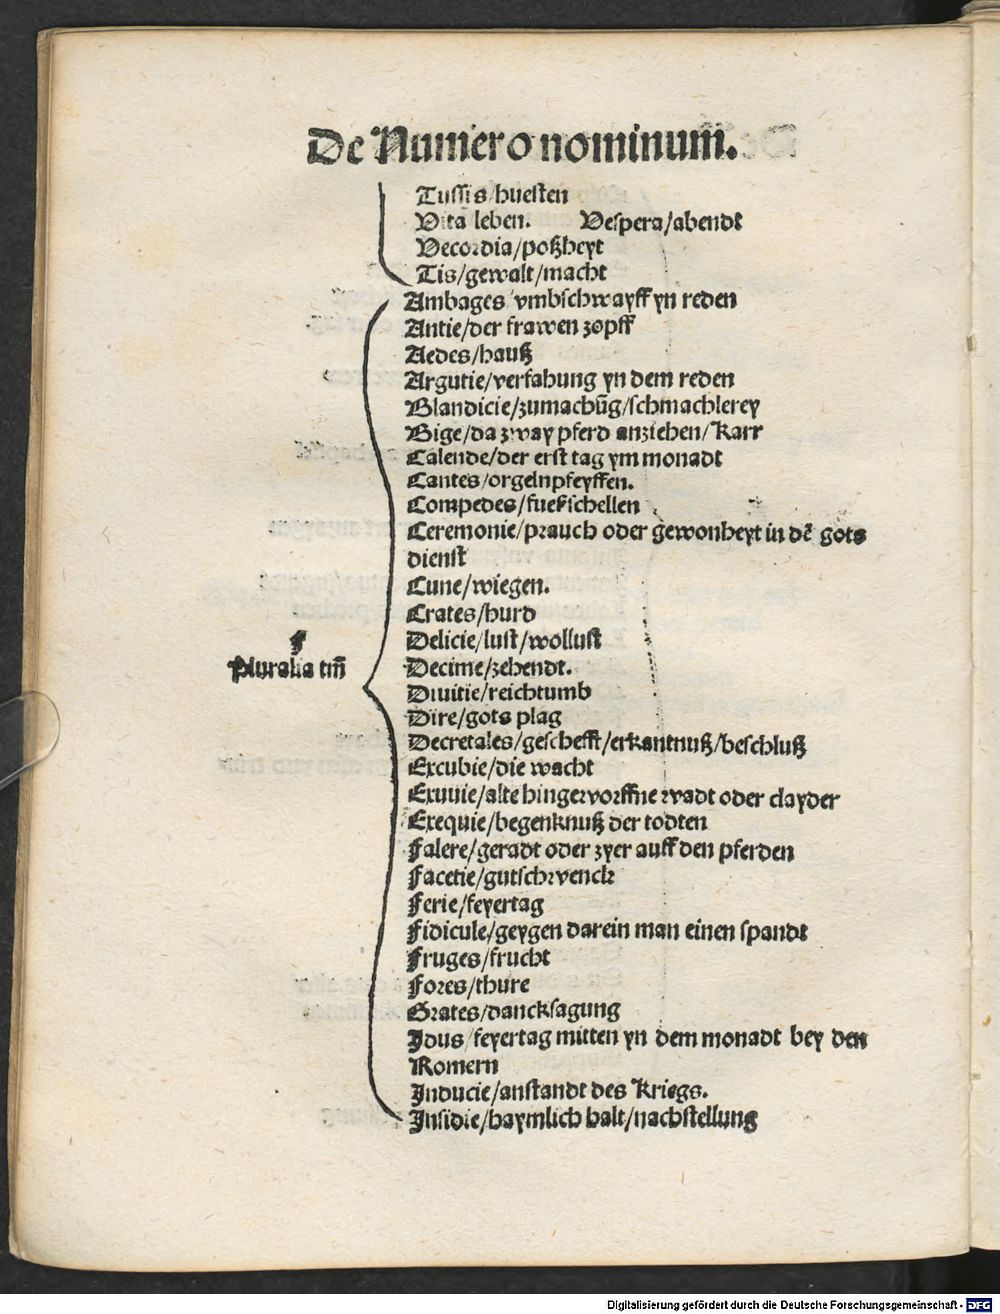 De Numero nominum.
Tussis/huesten
Vita leben. Vespera/abendt
Vecordia/poßheyt
Tis/gewalt/macht
Ambages/vmbschwayff yn reden
Antie/der frawen zopff
Aedes/hauß
Argutie/verfahung yn dem reden
Blandicie/zumachūg/schmachlerey
Bige/da zway pferd anziehen/karr
Calende/der erst tag ym monadt
Cantes/orgelnpfeyffen.
Compedes/fueßschellen
Ceremonie/prauch oder gewonheyt in dē gots
dienst
Cune/wiegen.
Crates/hurd
Delicie/lust/wollust
F
Pluralia tm̄
Decime/zehendt.
Diuitie/reichtumb
Dire/gots plag
Decretales/geschefft/erkantnuß/beschluß
Excubie/die wacht
Exuuie/alte hingeworffne wadt oder clayder
Exequie/begenknuß der todten
Falere/geradt oder zyer auff den pferden
Facetie/gutschwenck
Ferie/feyertag
Fidicule/geygen darein man einen spandt
Fruges/frucht
Fores/thure
Grates/dancksagung
Idus/feyertag mitten yn dem monadt bey den
Romern
Inducie/anstandt des kriegs.
Insidie/haymlich halt/nachstellung
Digitalisierung gefördert durch die Deutsche Forschungsgemeinschaft - DFG